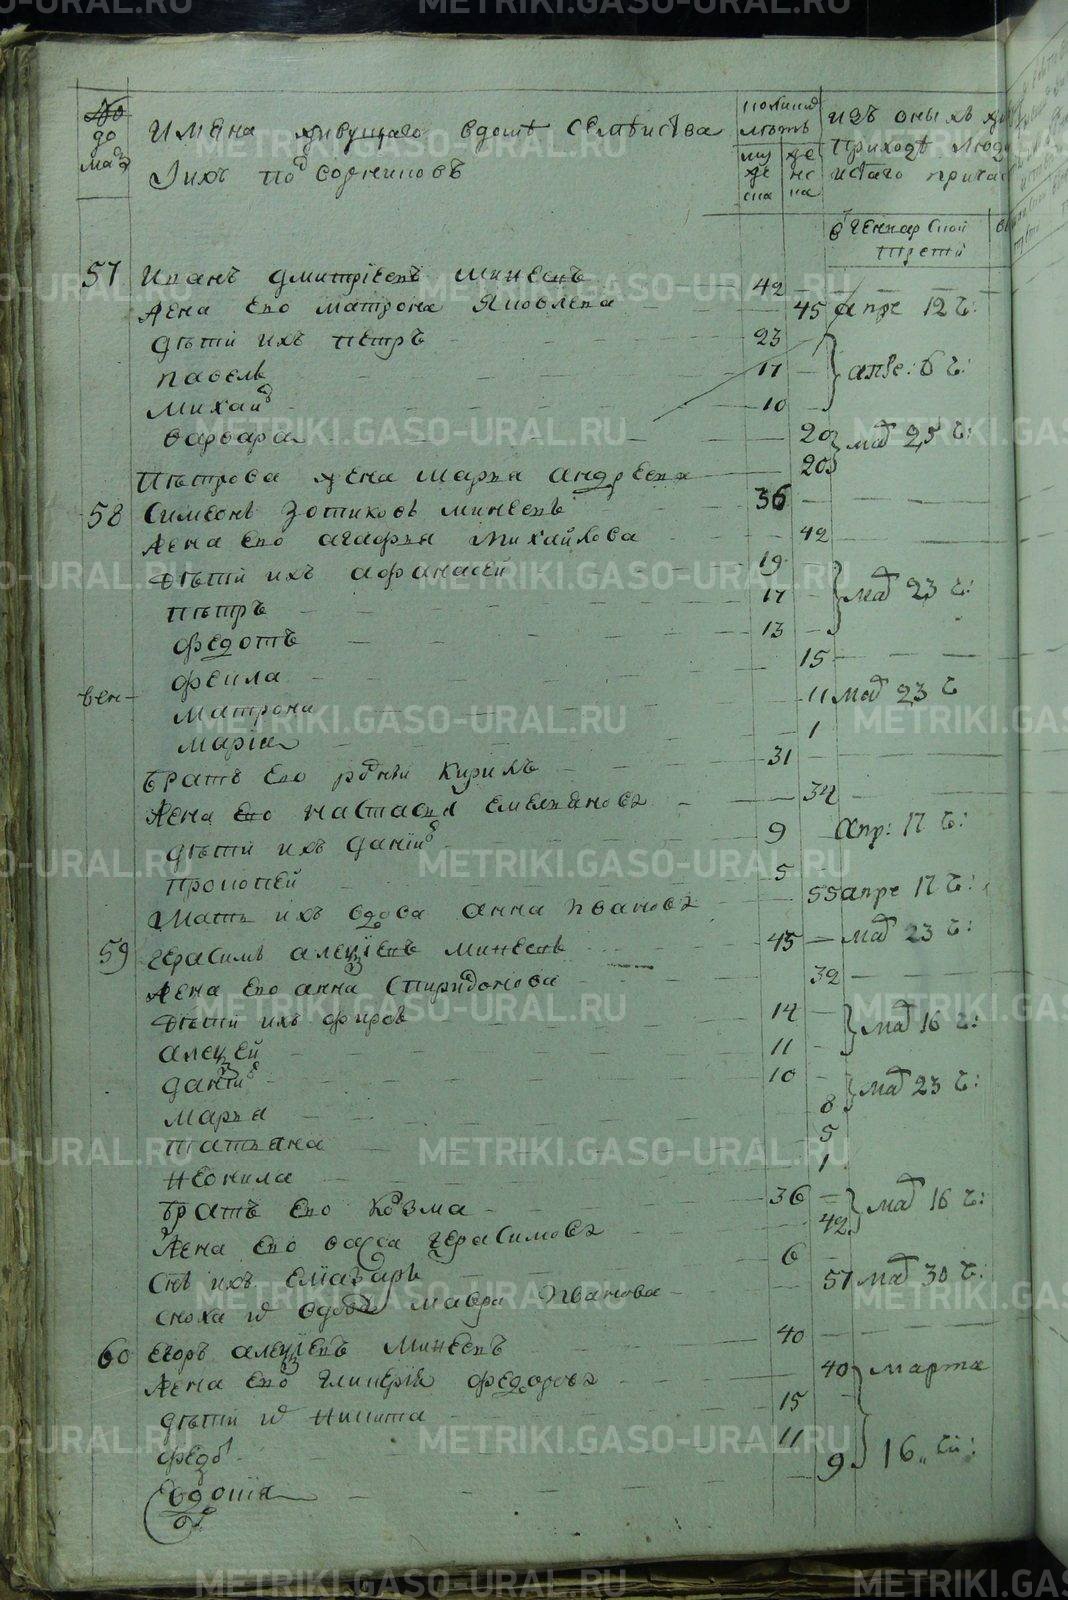 № домад
имяна живущаго вдомѣ семѣиства
ихъ подсоәниковъ
колика лѣтъ
муже ска
же нс ка
изъ оныхъ
приходѣ люде
истаго прича
в генкар ской трети
57 иванъ дмитріевъ минеевъ 42
жена ево матрона яковлева 45 апре 12 ч:
дѣтй ихъ петръ 23
павелъ 17 апре: 6 ч:
михайл 10
варвара 20 май 25 ч:
Пѣтрова жена марья андреева 20
58 Симеонъ зотиковъ минеевъ 36
жена ево агафья михайлова 42
дѣтй ихъ афанасей 19
пѣтръ 17 май 23 ч:
федотъ 13
феила 15
вен матрона 11 май 23 ч
мария 1
братъ ево родный кирилъ 31
жена ево настасья емельянова 34
дѣтй ихъ данйл 9 апр: 17 ч:
прокопей 5
мать ихъ вдова анна иванова 55 апре 17 ч:
59 герасимъ алексіевъ минеевъ 45 май 23 ч:
жена ево анна спиридонова 32
дѣтй ихъ фирсъ 14 май 16 ч:
алексей 11
данйл 10 май 23 ч:
марья 8
татьяна 5
неонила 1
братъ ево козма 36 май 16 ч:
жена ево васса герасимова 42
снъ ихъ елиазаръ 6
сноха их вдова мавра иванова 57 май 30 ч:
60 егоръ алексіевъ минеевъ 40
жена ево гликерія федорова 40 марта
дѣтй их никита 15
федор 11
евдокия 9 16 чи:
METRIKI.GASO-URAL.RU